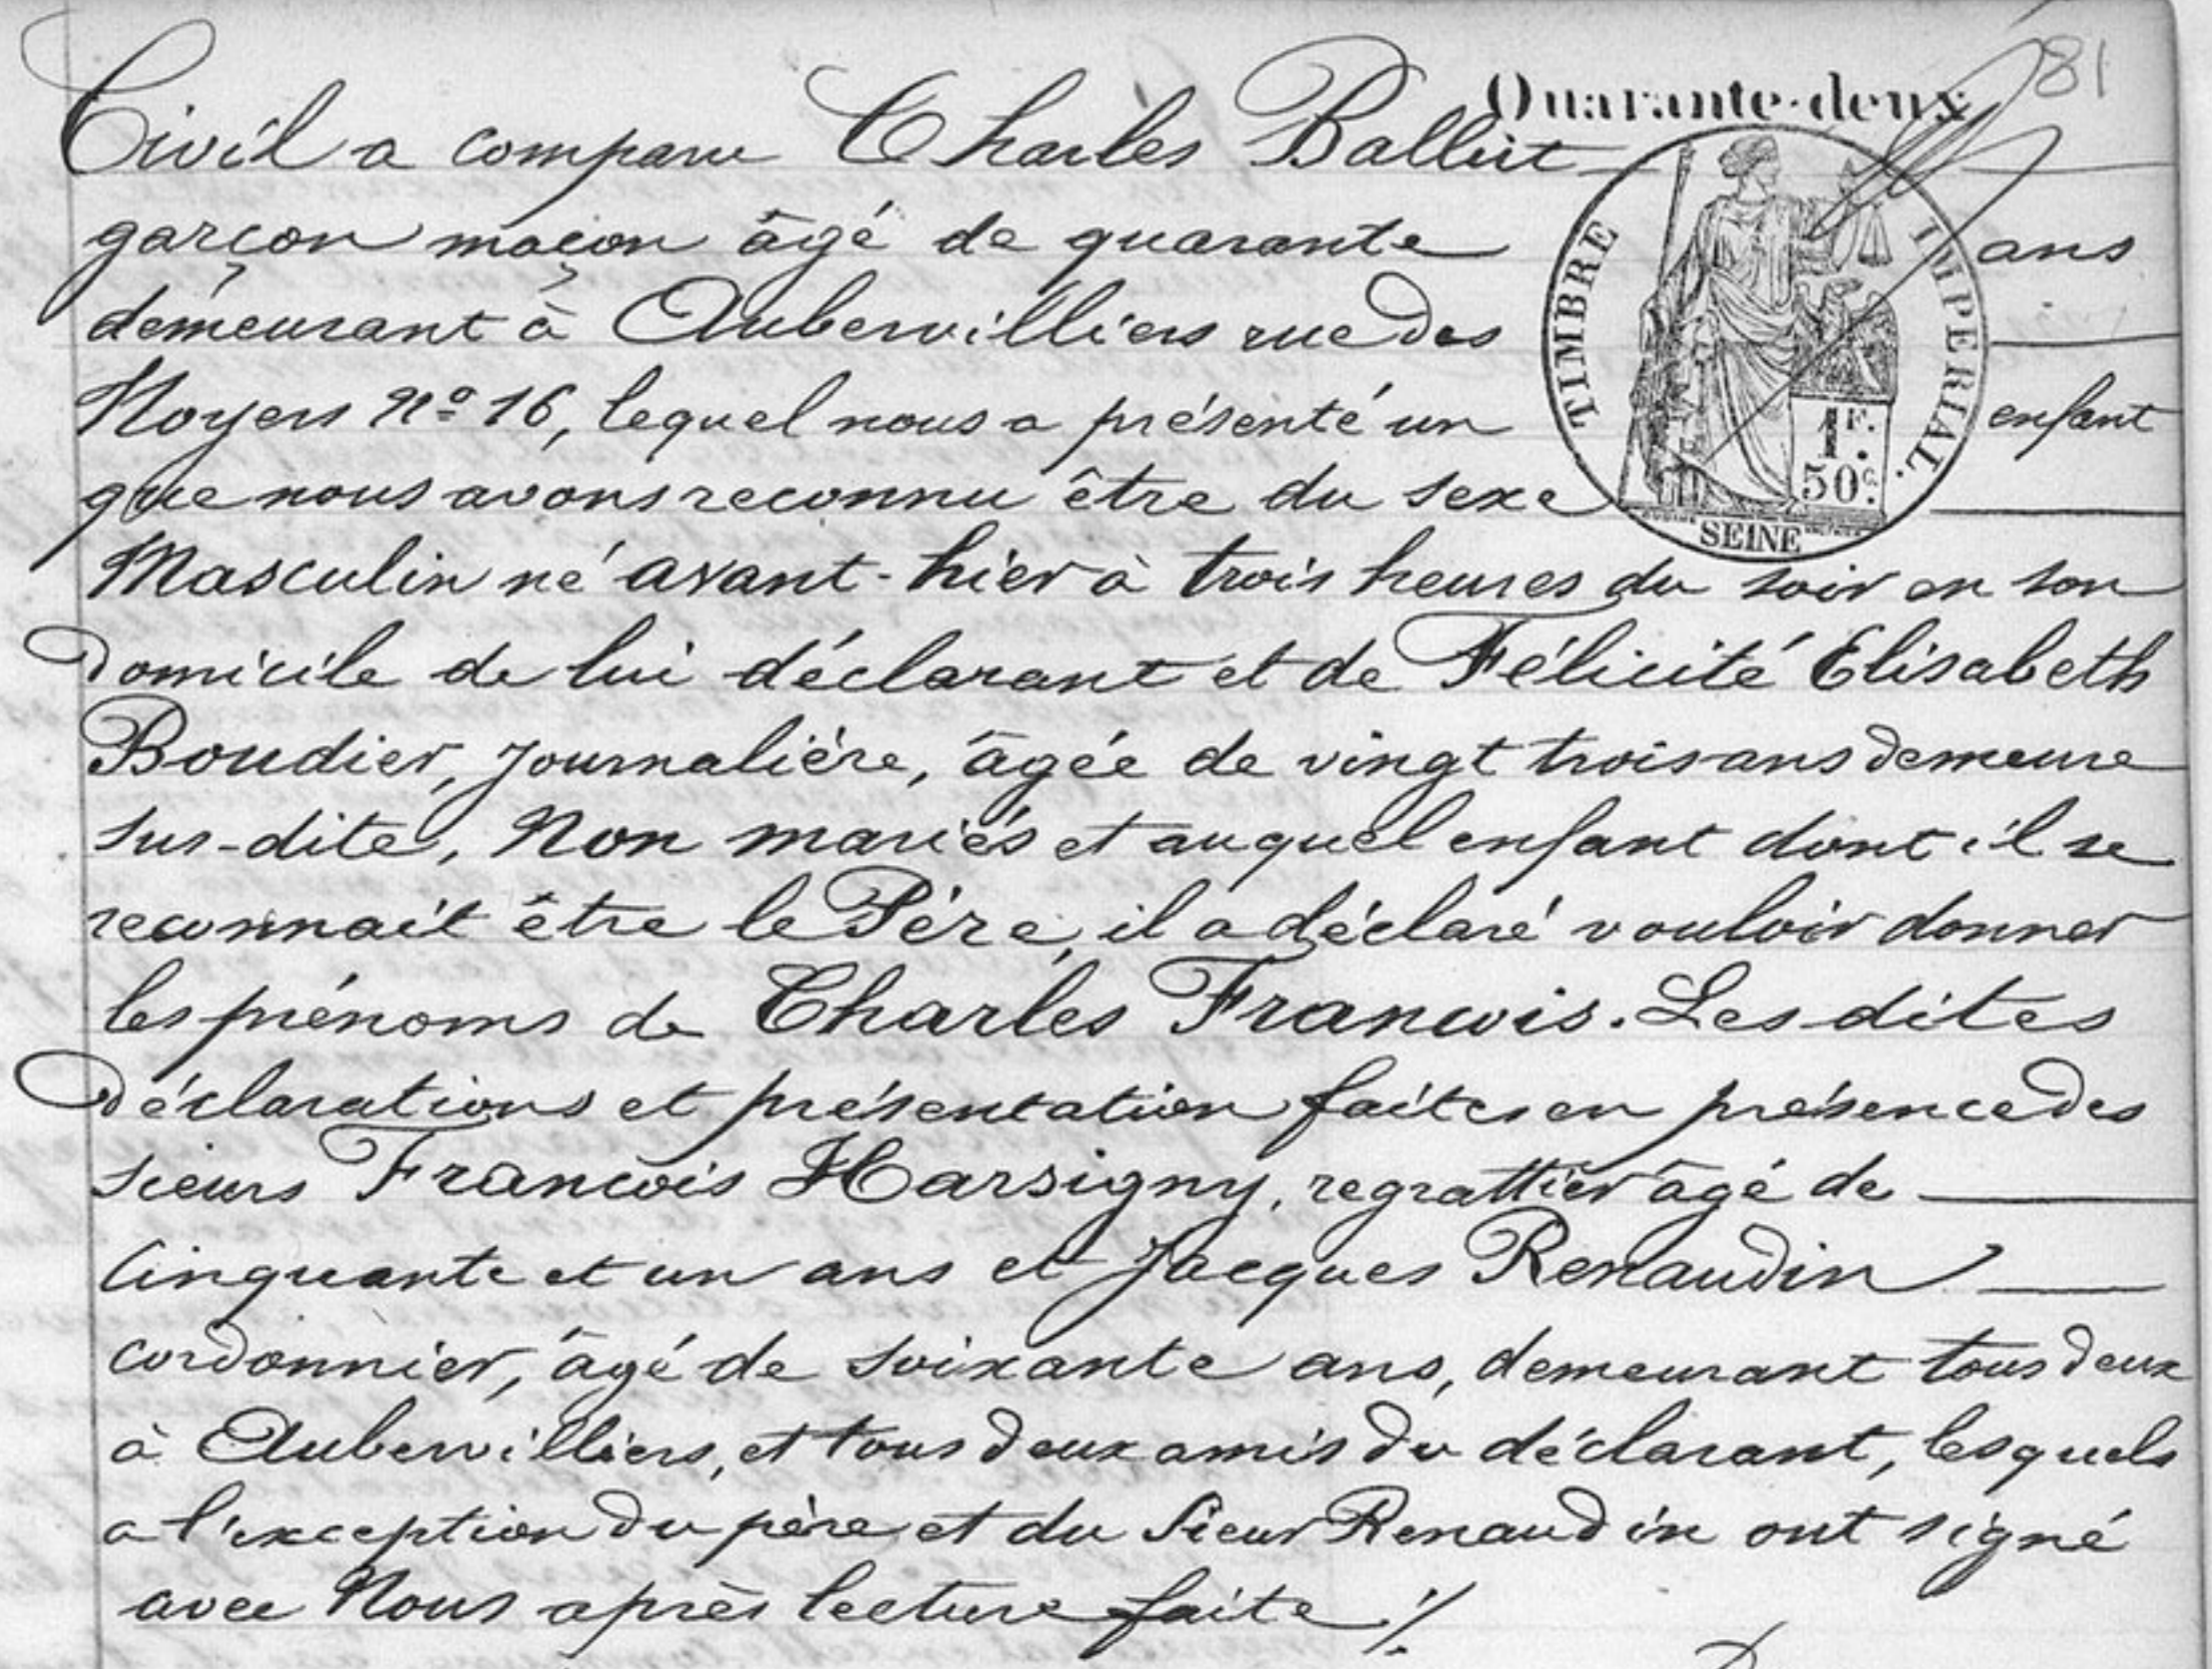 Quarante-deux 81
Civil a comparu Charles Balluit
garçon maçon âgé de quarante ans
demeurant à Aubervilliers rue des
Noyers No 16, lequel nous a présenté un enfant
que nous avons reconnu être du sexe
Masculin né avant-hier à trois heures du soir en son
domicile de lui déclarant et de Félicité Elisabeth
Boudier, Journalière, âgée de vingt trois ans demeure
sus-dite, Non mariés et auquel enfant dont il se
reconnait être le Père, il a déclaré vouloir donner
les prénoms de Charles Francois. Les dites
déclarations et présentation faites en présence des
sieurs Francois Harsigny, regrattier âgé de
Cinquante et un ans et Jacques Renaudin
cordonnier, âgé de soixante ans, demeurant tous deux
à Aubervilliers, et tous deux amis du déclarant, lesquels
a l'exception du père et du Sieur Renaudin ont signé
avec Nous après lecture faite ./.
TIMBRE IMPERIAL.
1F.
50c.
SEINE